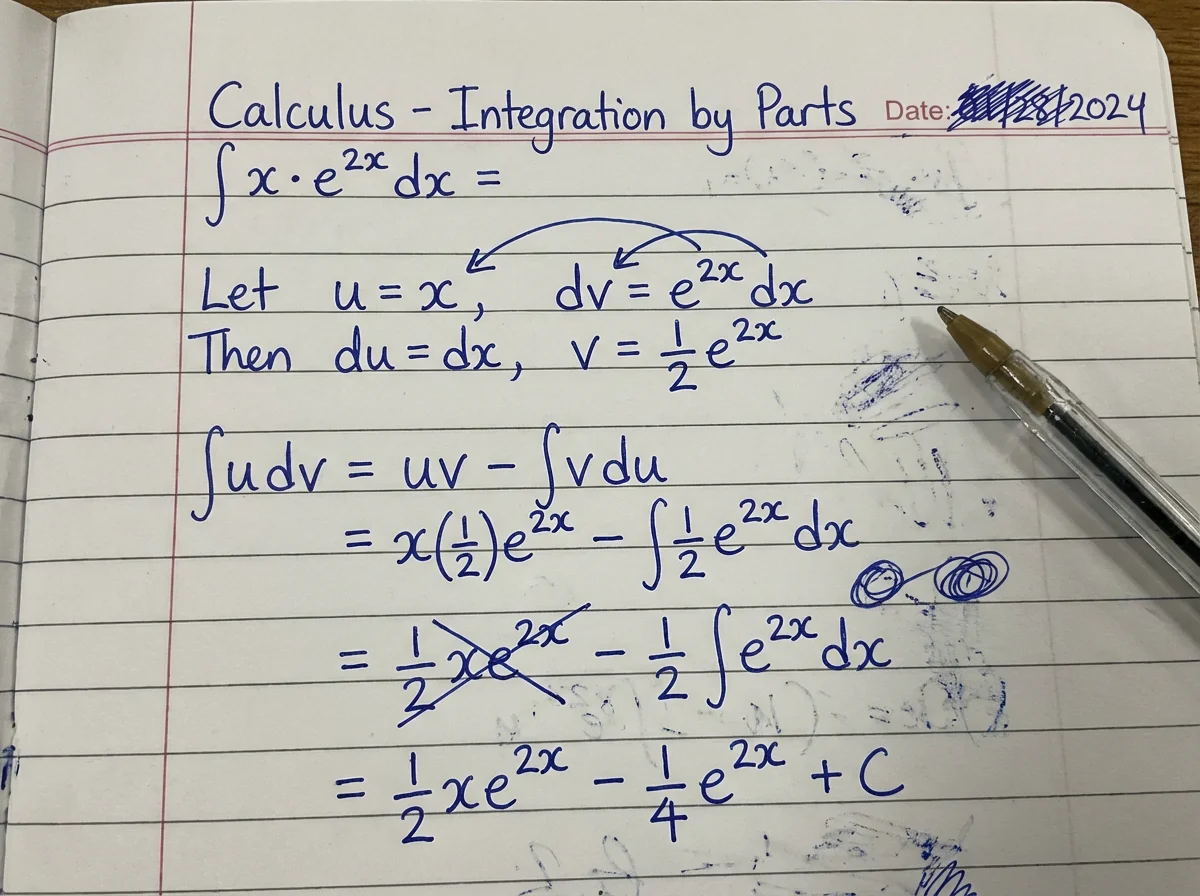 Calculus - Integration by Parts Date: /28/2024
∫ x · e^{2x} dx =
Let u = x, dv = e^{2x} dx
Then du = dx, v = \frac{1}{2} e^{2x}
∫ u dv = uv - ∫ v du
= x(\frac{1}{2})e^{2x} - ∫ \frac{1}{2} e^{2x} dx
= \frac{1}{2} xe^{2x} - \frac{1}{2} ∫ e^{2x} dx
= \frac{1}{2} xe^{2x} - \frac{1}{4} e^{2x} + C